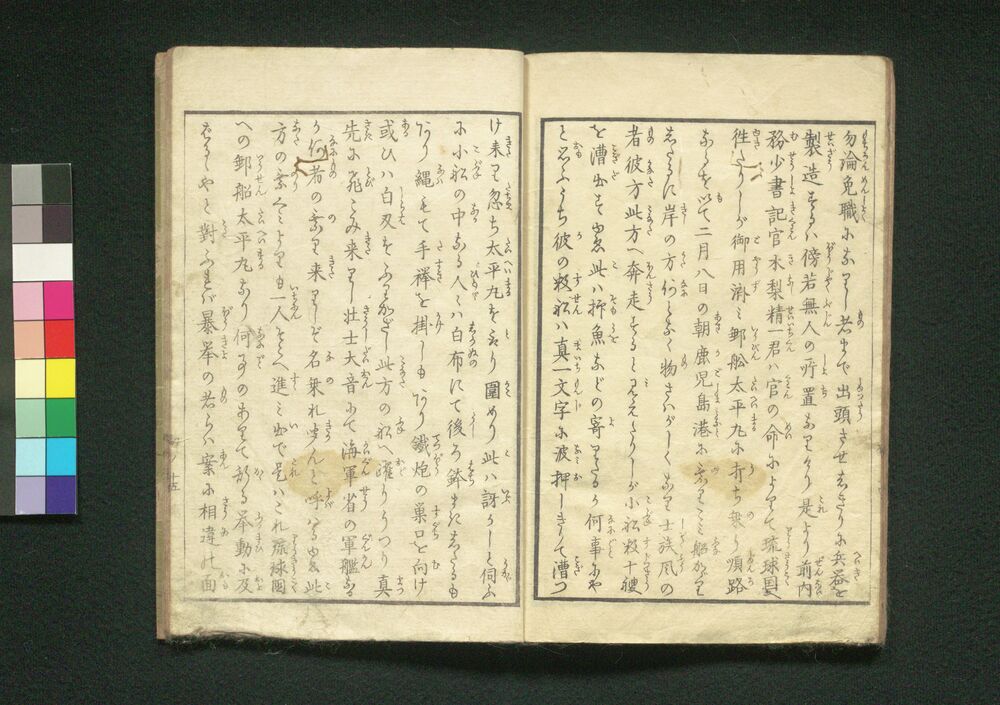 勿論免職になりし者まで出頭させしきりに兵器を
製造するは傍若無人の所置なりけり是より前内
務少書記官木梨精一君は官の命によりて琉球国
往たりしが御用済み郵船太平丸に打ち乗り順路
ならを以て二月八日の朝鹿児島港に乗りこみ船がゝり
したるに岸の方何となく物さわがしくなり士族風の
者彼方此方へ奔走をると見えたりしが小船数十艘
を漕出すは此は抑魚などの寄りたるか何事にや
と思ふうち彼の数船は真一文字に波押しきりて漕つ
け来り忽ち太平丸を取り囲めり此は訝かしと伺ふ
に小船の中なる人々は白布にて後ろ鉢まきしたるも
あり縄もて手襷を掛しもあり鉄炮の巣口を向け
或ひは白刃をふりかざし此方の船へ躍りうつり真
先に飛こみ来りし壮士大音にて海軍省の軍艦なる
か何者の乗り来りしぞ名乗れ聞んと呼はる此
方の乗くみよりも一人をくへ進み出で是はこれ琉球国
への郵船太平丸なり何事のありて斯る挙動に及
ばるゝやと対ふれば暴挙の者らは案に相違の面